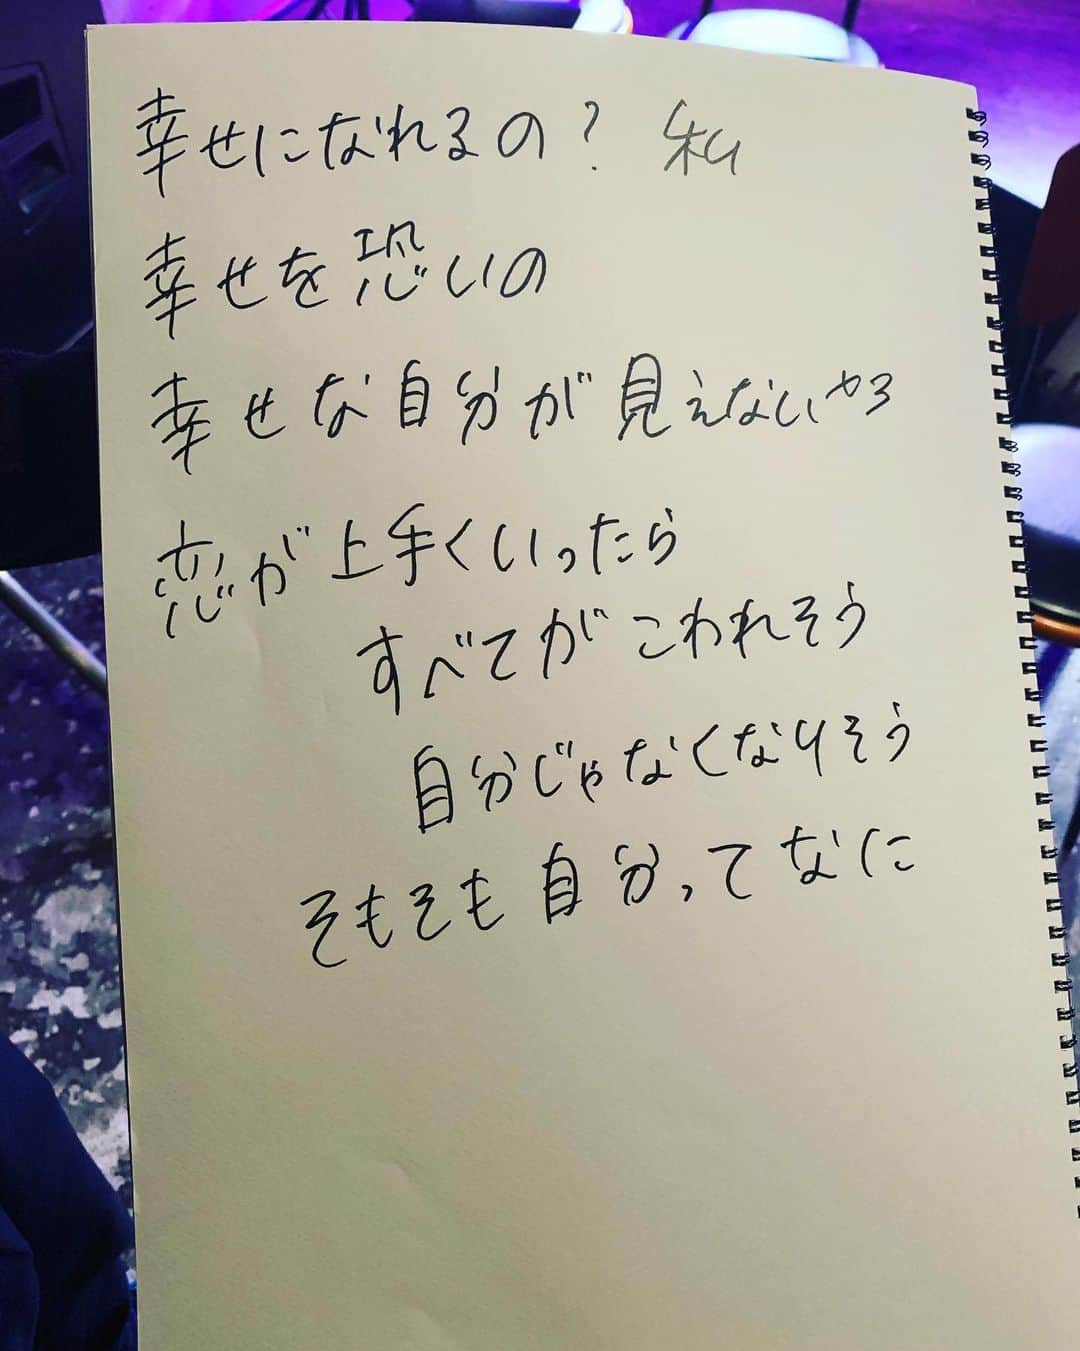 幸せになれるの？ 私
幸せを恐いの
幸せな自分が見えないやろ
恋が上手くいったら
すべてがこわれそう
自分じゃなくなりそう
そもそも自分ってなに